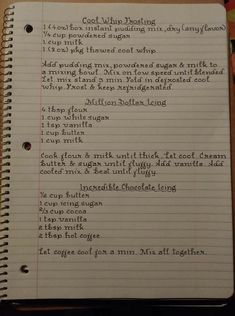 Cool Whip Frosting
1 (4oz) box instant pudding mix, dry (any flavor)
¼ cup powdered sugar
1 cup milk
1 (8 oz) pkg thawed cool whip
Add pudding mix, powdered sugar & milk to
a mixing bowl. Mix on low speed until blended.
Let mix stand 3 min. Fold in defrosted cool
whip. Frost & keep refrigerated.
Million Dollar Icing
4 tbsp flour
1 cup white sugar
1 tsp vanilla
1 cup butter
1 cup milk
Cook flour & milk until thick. Let cool. Cream
butter & sugar until fluffy. Add vanilla. Add
cooled mix & beat until fluffy.
Incredible Chocolate Icing
½ cup butter
1 cup icing sugar
⅔ cup cocoa
1 tsp vanilla
2 tbsp milk
2 tbsp hot coffee
Let coffee cool for 2 min. Mix all together.